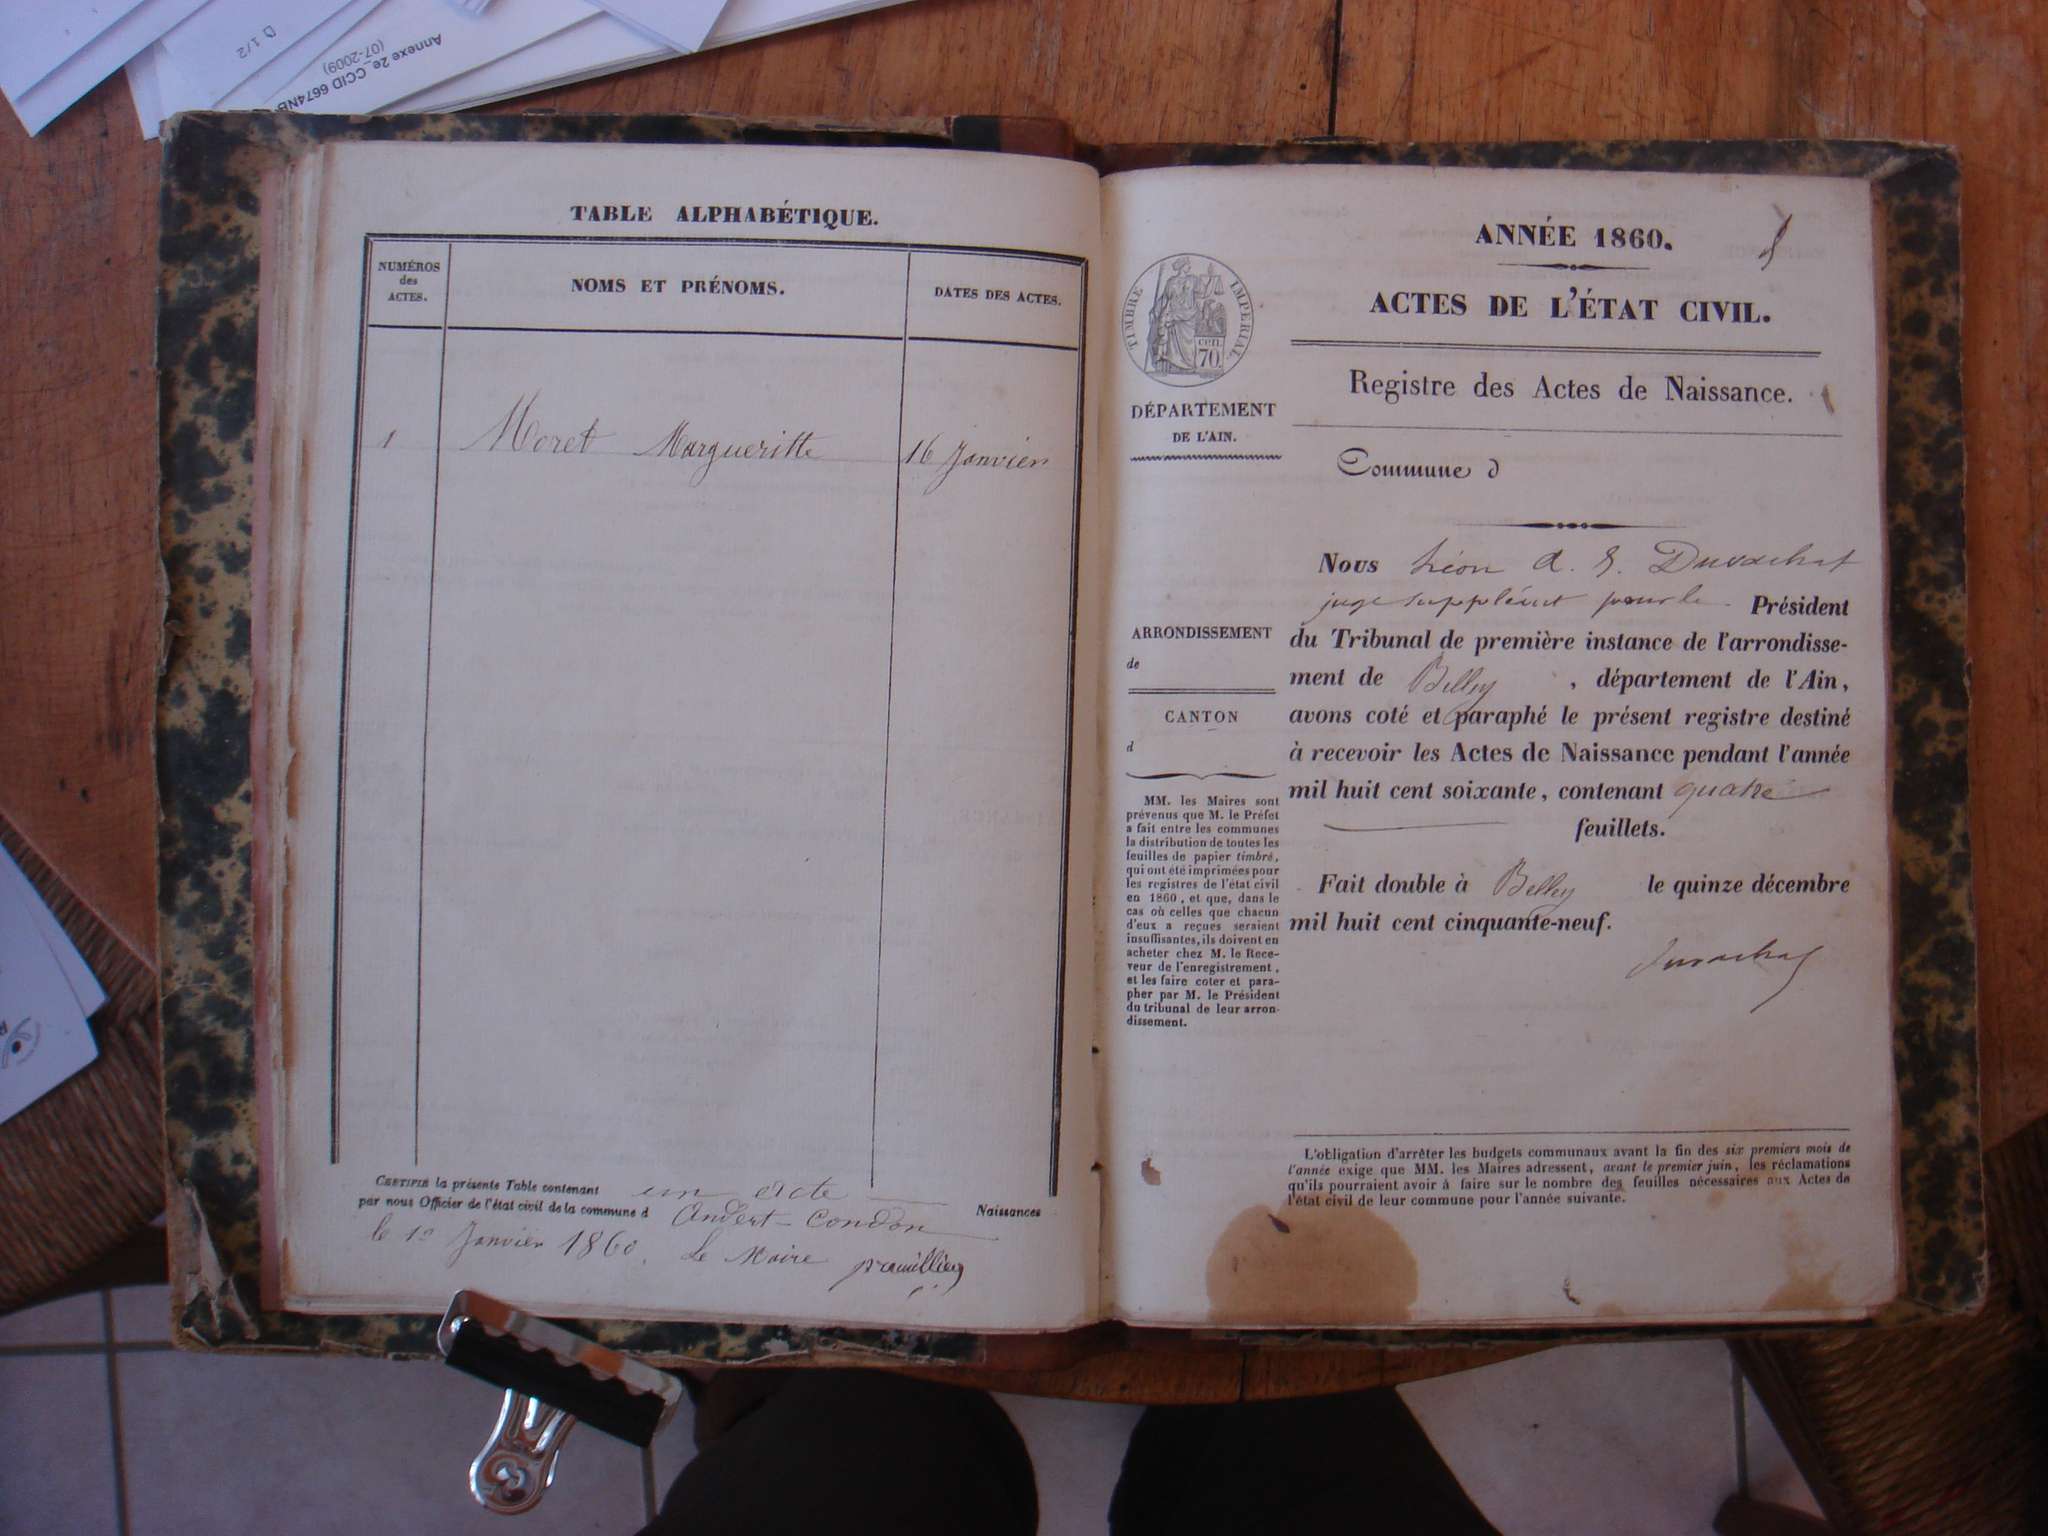 D 1/2
Annexe 2e_CCID 6674NB
(07-2009)
TABLE ALPHABÉTIQUE.
NUMÉROS
des
ACTES.
NOMS ET PRÉNOMS.
DATES DES ACTES.
1 Moret Margueritte 16 Janvier
CERTIFIÉ la présente Table contenant un acte Naissances
par nous Officier de l'état civil de la commune d Andert-Condon
le 1er Janvier 1860. Le Maire
ANNÉE 1860.
ACTES DE L'ÉTAT CIVIL.
Registre des Actes de Naissance.
TIMBRE IMPÉRIAL
cen.
70.
DÉPARTEMENT
DE L'AIN.
ARRONDISSEMENT
de
CANTON
d
MM. les Maires sont
prévenus que M. le Préfet
a fait entre les communes
la distribution de toutes les
feuilles de papier timbré,
qui ont été imprimées pour
les registres de l'état civil
en 1860, et que, dans le
cas où celles que chacun
d'eux a reçues seraient
insuffisantes, ils doivent en
acheter chez M. le Rece-
veur de l'enregistrement,
et les faire coter et para-
pher par M. le Président
du tribunal de leur arron-
dissement.
Commune d
Nous Léon A. Duvachat
juge suppléant pour le Président
du Tribunal de première instance de l'arrondisse-
ment de Belley, département de l'Ain,
avons coté et paraphé le présent registre destiné
à recevoir les Actes de Naissance pendant l'année
mil huit cent soixante, contenant quatre
feuillets.
Fait double à Belley le quinze décembre
mil huit cent cinquante-neuf.
Duvachat
L'obligation d'arrêter les budgets communaux avant la fin des six premiers mois de
l'année exige que MM. les Maires adressent, avant le premier juin, les réclamations
qu'ils pourraient avoir à faire sur le nombre des feuilles nécessaires aux Actes de
l'état civil de leur commune pour l'année suivante.